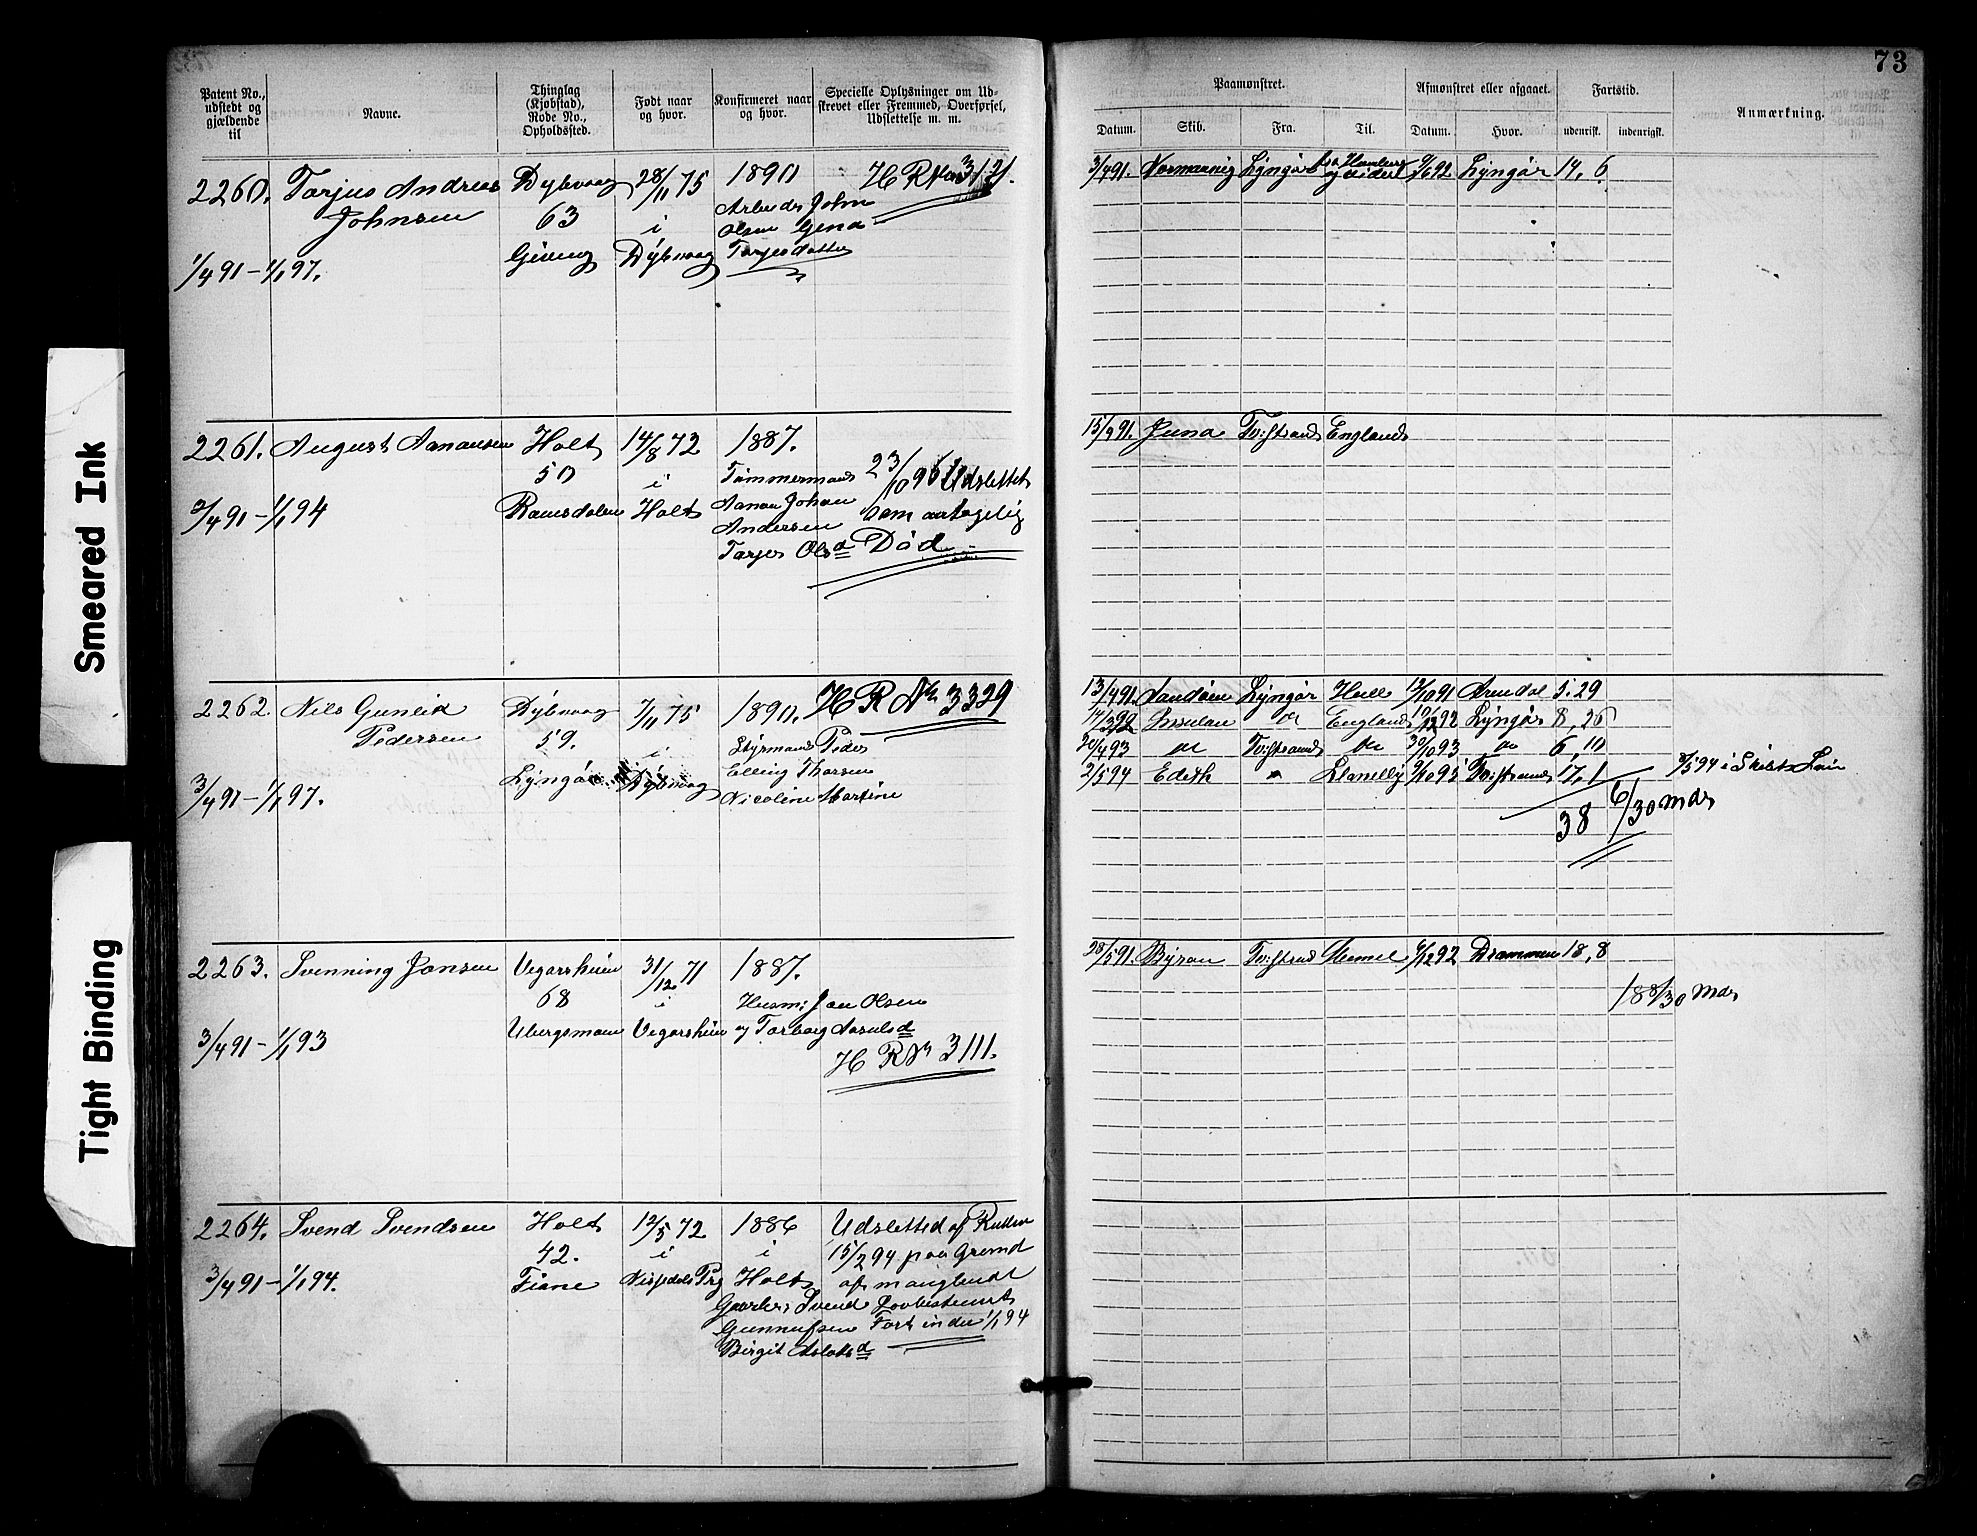 73
Patent No., udstedt og gjældende til
Navne.
Thinglag (Kjøbstad), Rode No., Opholdssted.
Født naar og hvor.
Konfirmeret naar og hvor.
Specielle Oplysninger om Udskrevet eller Fremmed, Overførsel, Udslettelse m. m.
Paamønstret.
Afmønstret eller afgaaet.
Fartstid.
Anmærkning.
Datum. Skib. Fra. Til. Datum. Hvor. udenrisk. indenrigsk.
2260. Tarjus Andreas Dybvaag 28/11 75 1890 H R No 3121.
Johnsen 63 i Arbeider John
Olsen Gina
1/4 91 – 1/1 97. Gieving Dybvaag Tarjesdatter
3/4 91. Normanvig Lyngør Hamburg 9/6 92 Lyngør 14, 6
2261. August Aanonsen Holt 14/8 72 1887.
50 i Tømmermand 23/10 96 Udslettet
3/4 91 – 1/1 94 Ramsdalen Holt Aanon Johan som antagelig
Andersen
Tarjer Olsd Død
15/9 91. Juno Tvedestrand England
2262. Nils Gunleik Dybvaag 7/11 75 1890. H R No 3329
Pedersen 59. i Styrmand Peder
Elling Thorsen
3/4 91 – 1/1 97. Lyngør Dybvaag Nicoline Martine
13/4 91. Sandøen Lyngør Hull 12/10 91 Arendal 5. 29
14/3 92 do England 10/12 92 Lyngør 8, 26
20/4 93 do Tvedestrand do 30/10 93 do 6, 11
2/5 94 Edith " Llanelly 9/10 95 Tvedestrand 17, 1
38 6/30 Mdr
2263. Svenning Jansen Vegarsheien 31/12 71 1887.
68 i Husm: Jan Olsen
3/4 91 – 1/1 93 Ubergsmoen Vegarsheien og Torborg Aasulsd
H R No 3111.
28/5 91. Byron Tvedestrand Memel 6/12 92 Drammen 18, 8
18 8/30 Mdr
2264. Svend Svendsen Holt 12/5 72 1886 Udslettet af Rullen
42. i i 15/2 94 paa Grund
3/4 91 – 1/1 94. Fiane Nissedals Prg Holt af manglende
Gaarbr: Svend Lovbestemt
Gunnufsen Fart inden 1/1 94
Birgit Aslaksd
Smeared Ink
Tight Binding